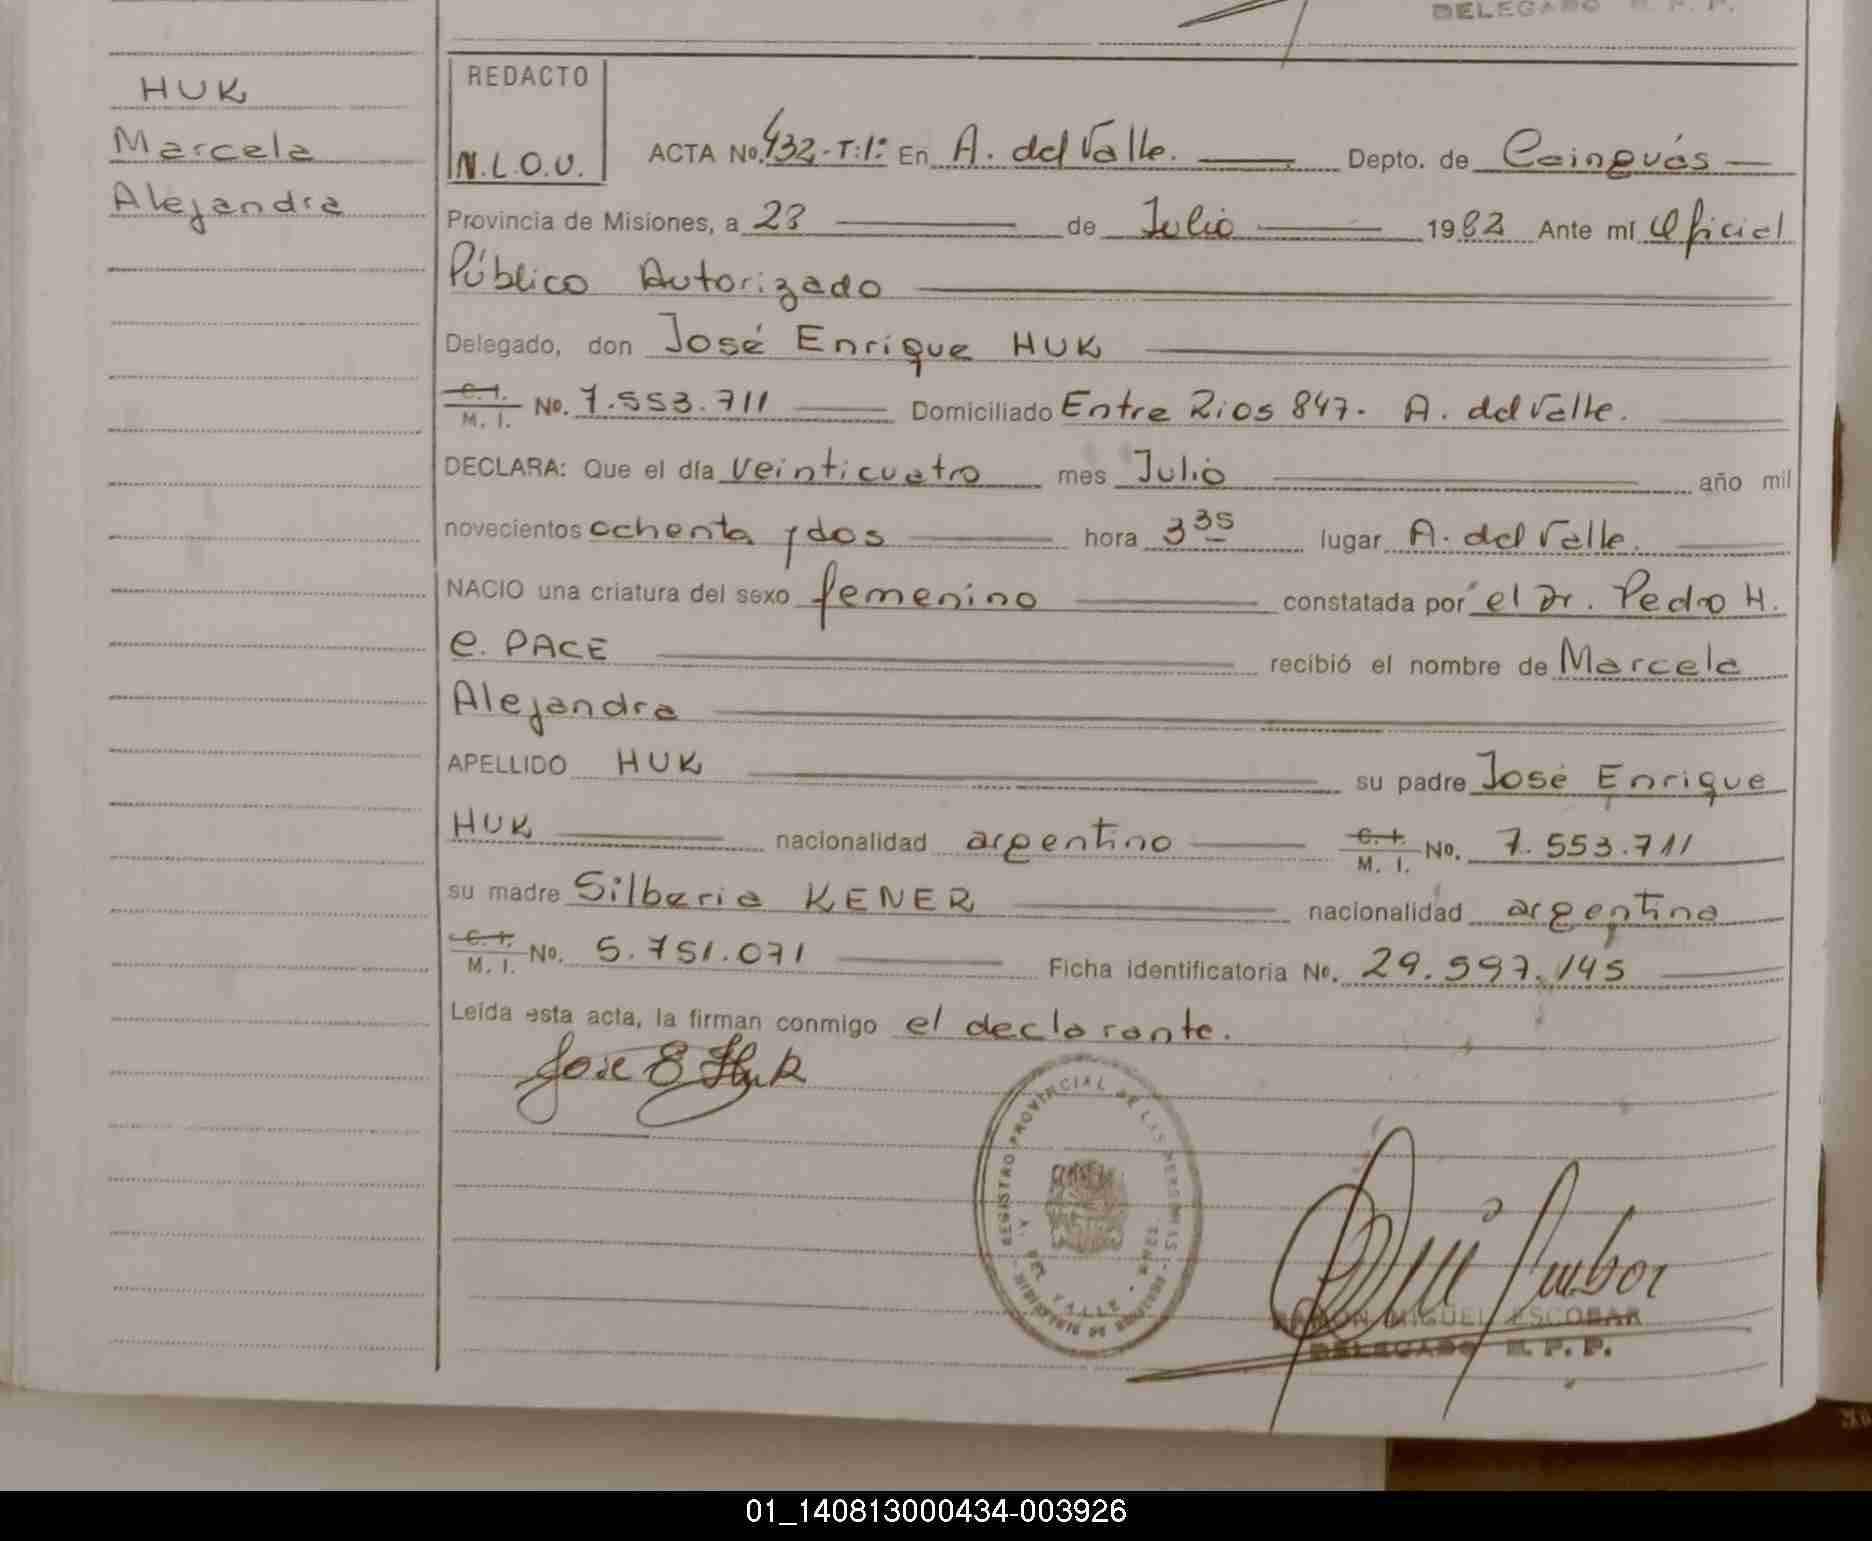 DELEGADO R. P. P.
HUK
Marcela
Alejandra
REDACTO
N.L.O.U.
ACTA No. 432-T:1º En A. del Valle. Depto. de Cainguás
Provincia de Misiones, a 28 de Julio 1982 Ante mí Oficial
Público Autorizado
Delegado, don José Enrique HUK
C. I. M. I. No. 7.553.711 Domiciliado Entre Rios 847. A. del Valle.
DECLARA: Que el día veinticuatro mes Julio año mil
novecientos ochenta y dos hora 3 35 lugar A. del Valle.
NACIO una criatura del sexo femenino constatada por el Dr. Pedro H.
e. PACE recibió el nombre de Marcela
Alejandra
APELLIDO HUK su padre José Enrique
HUK nacionalidad argentino C. I. M. I. No. 7.553.711
su madre Silberia KENER nacionalidad argentina
C. I. M. I. No. 5.751.071 Ficha identificatoria No. 29.597.145
Leída esta acta, la firman conmigo el declarante.
Jose E Huk
REGISTRO PROVINCIAL DE LAS PERSONAS
DEL VALLE
RAMON MIGUEL ESCOBAR
DELEGADO R. P. P.
01_140813000434-003926